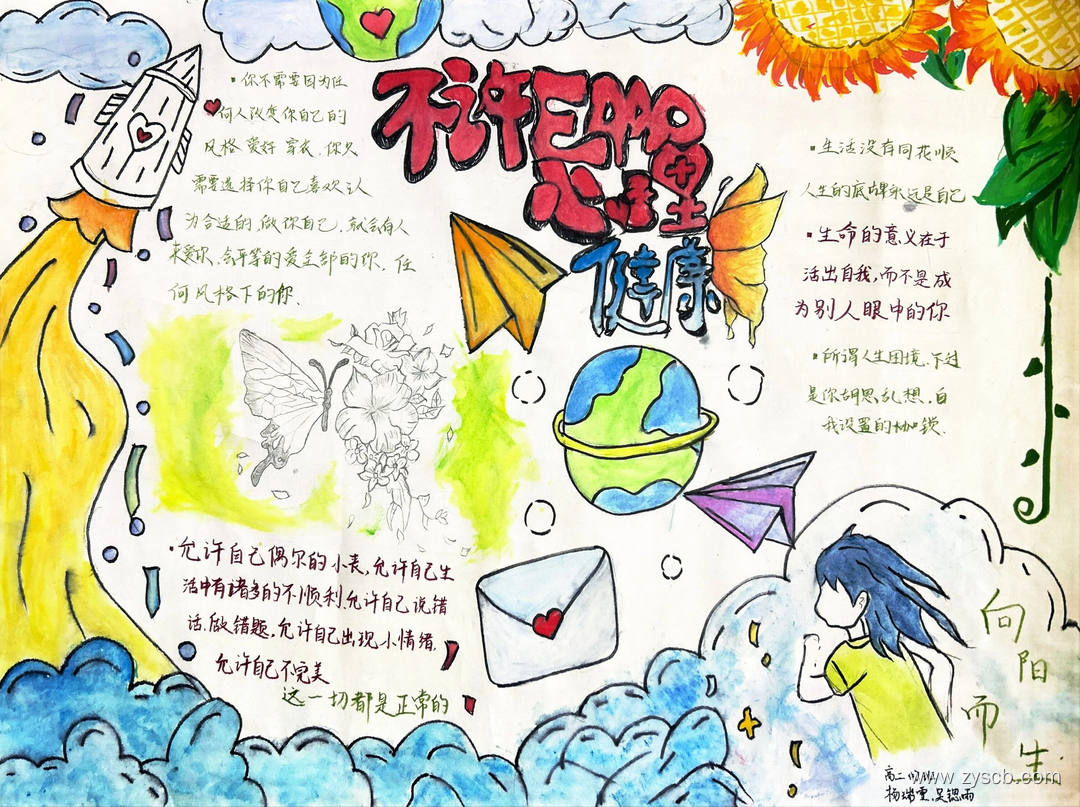 不许EMO
心理
健康
你不需要因为任
何人改变你自己的
风格 爱好 穿衣、你只
需要选择你自己喜欢认
为合适的,做你自己、就会有人
来爱你、会平等的爱全部的你、任
何风格下的你、
生活没有同花顺
人生的底牌永远是自己
生命的意义在于
活出自我,而不是成
为别人眼中的你
所谓人生困境、不过
是你胡思乱想、自
我设置的枷锁、
允许自己偶尔的小丧,允许自己生
活中有诸多的不顺利,允许自己说错
话、做错题,允许自己出现小情绪
允许自己不完美
这一切都是正常的
向
阳
而
生
高二
www.zyscb.com